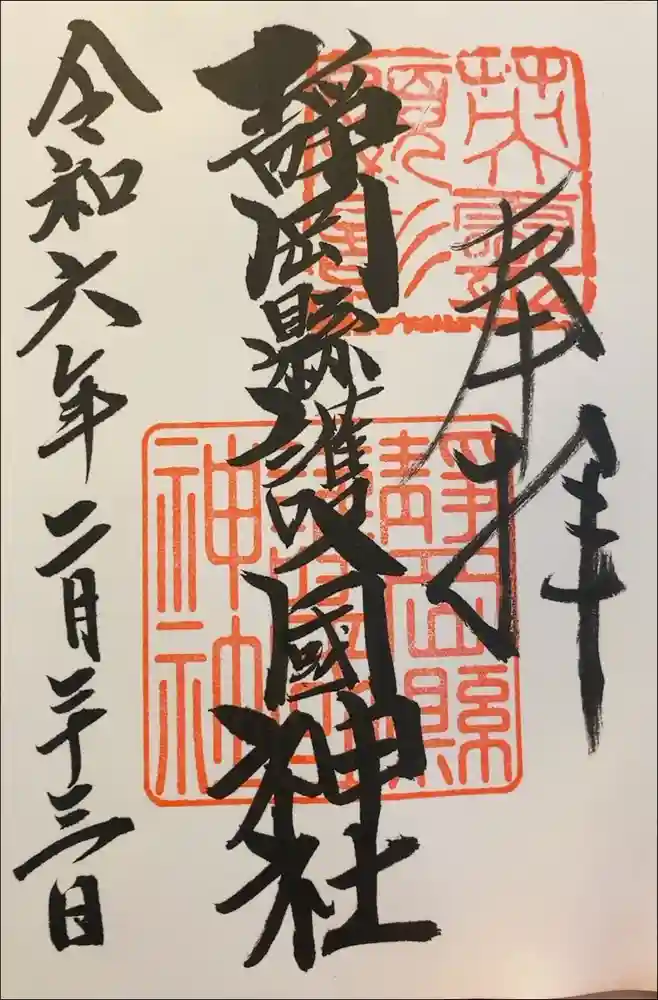 奉拝
靜岡縣護國神社
令和六年二月二十三日
英霊顕彰
静岡縣護國神社